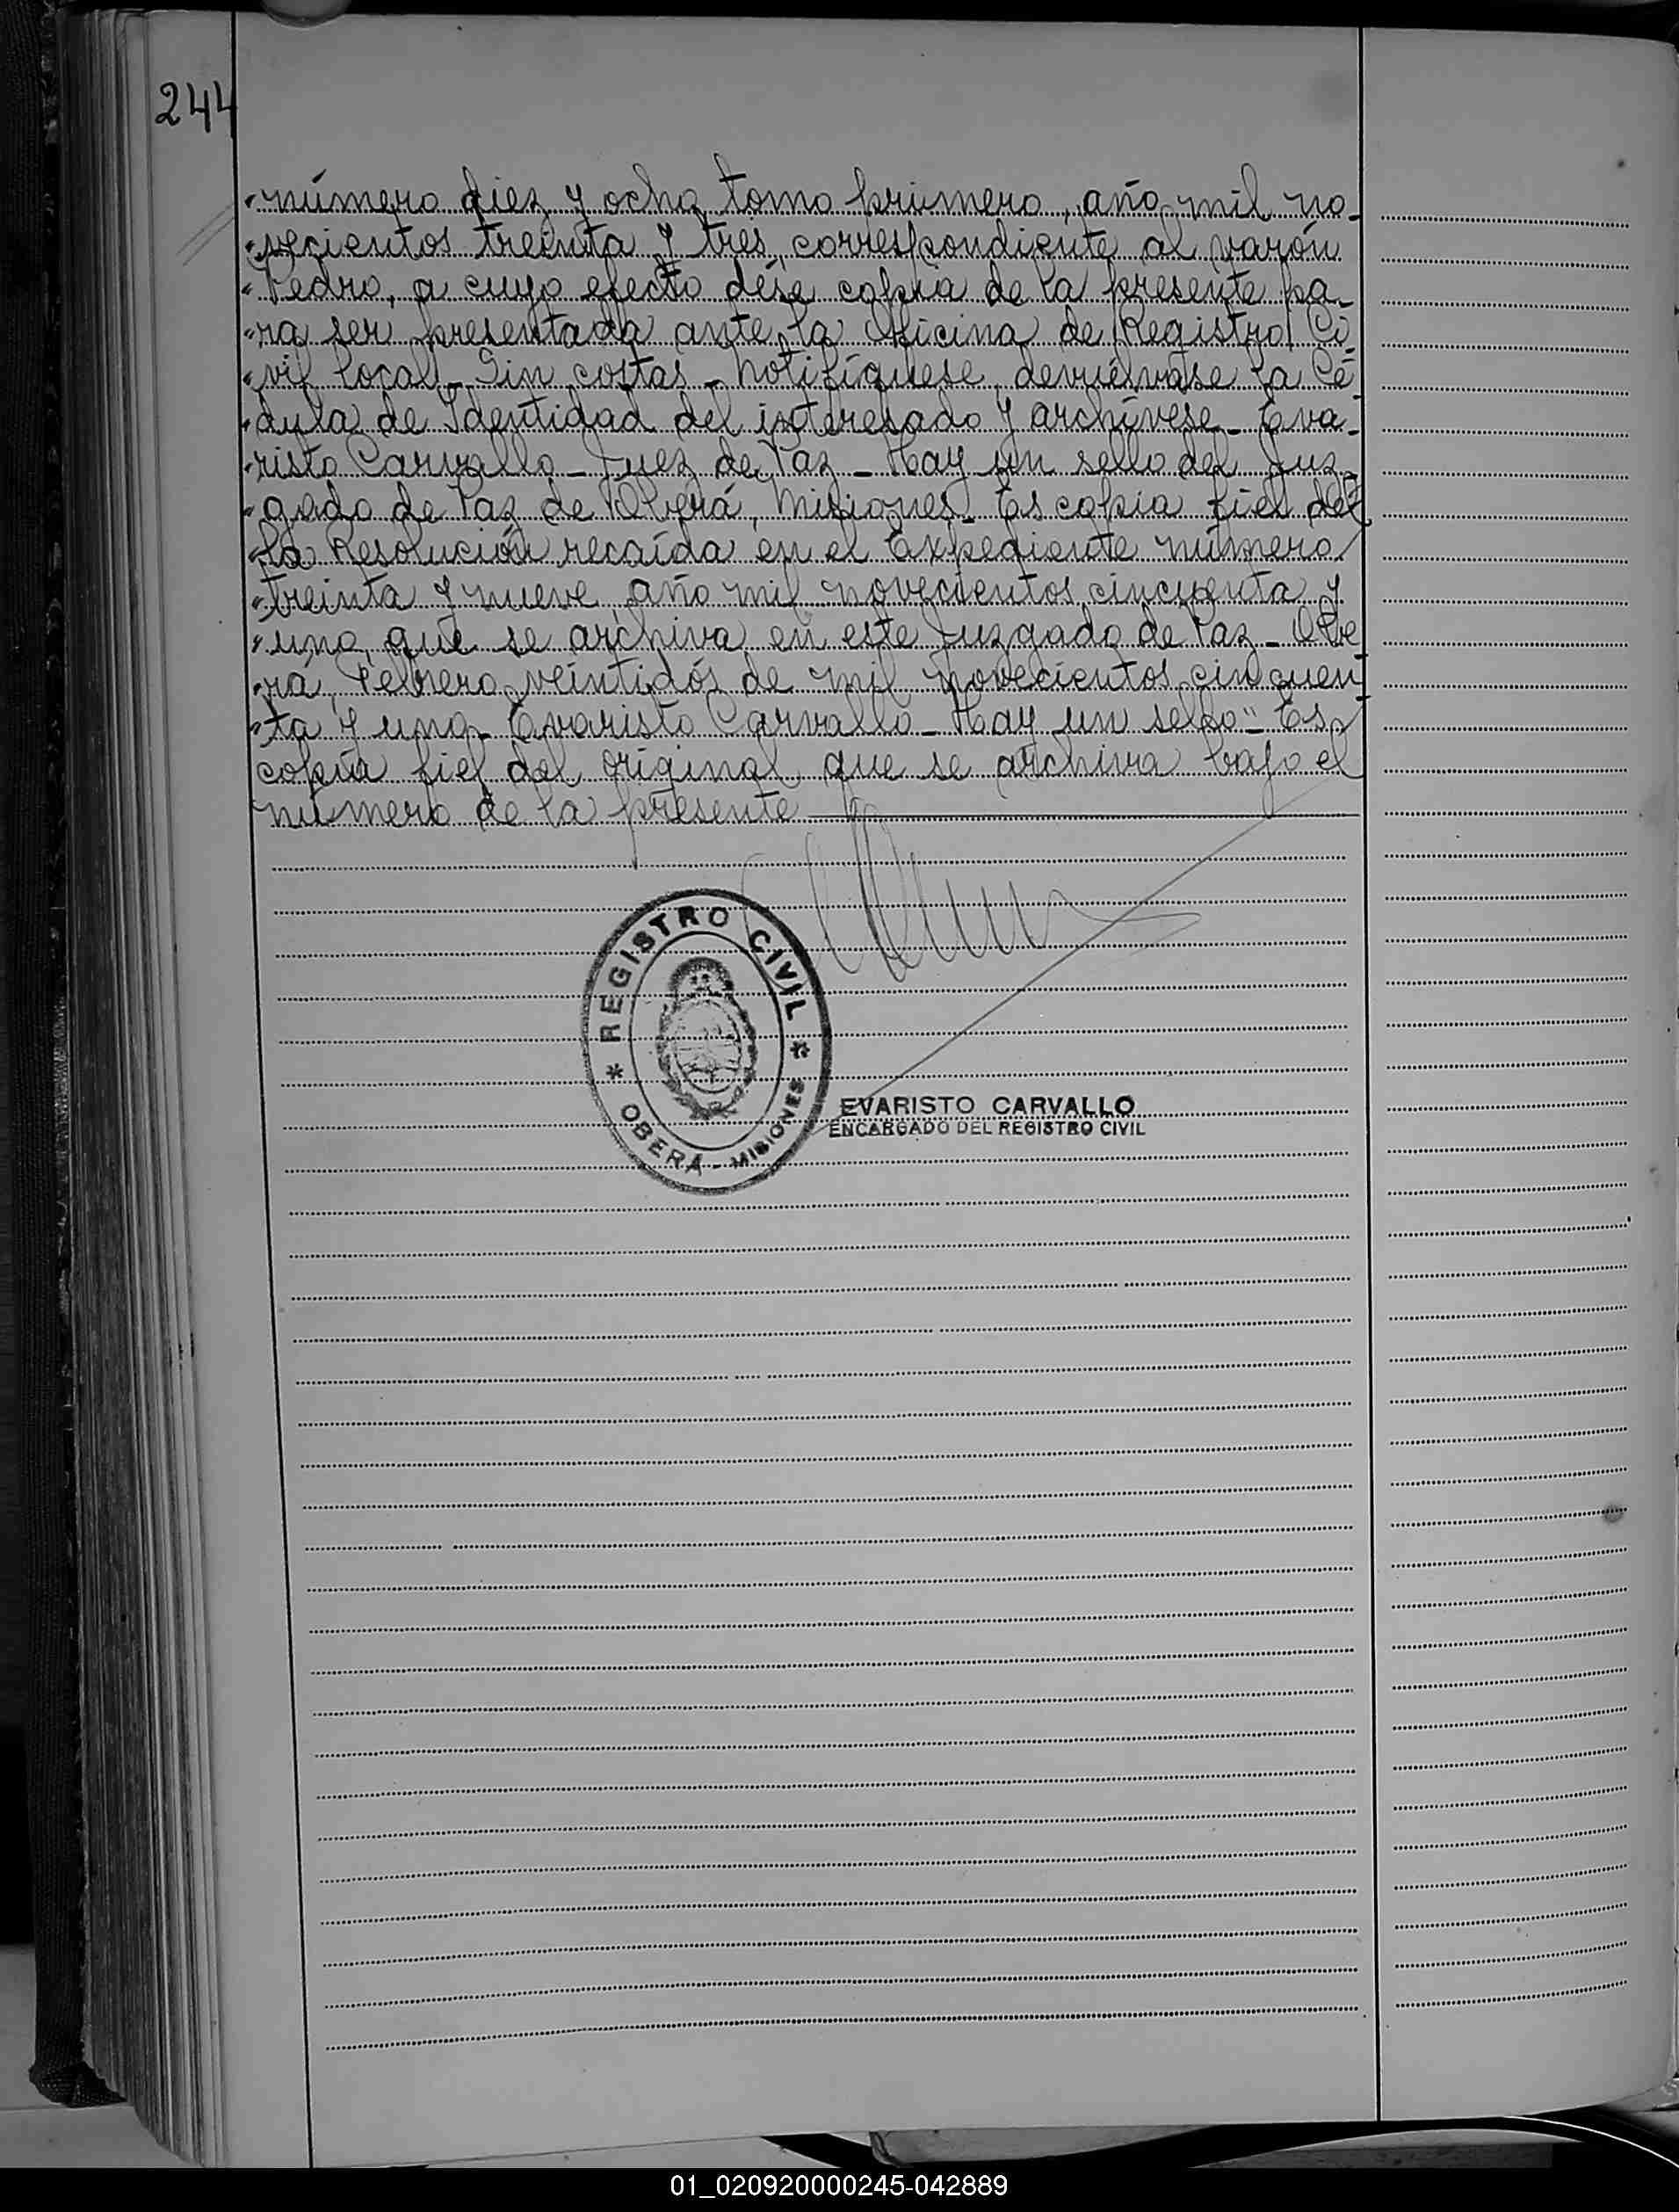 244
"número diez y ocho, tomo primero, año mil no-
"vecientos treinta y tres, correspondiente al varón
"Pedro, a cuyo efecto dése copia de la presente pa-
"ra ser presentada ante la Oficina de Registro Ci-
"vil local.- Sin costas.- Notifíquese, devuélvase la Cé-
"dula de Identidad del interesado y archívese.- Eva-
"risto Carvallo.- Juez de Paz.- Hay un sello del Juz-
"gado de Paz de Oberá, Misiones.- Es copia fiel de
"la Resolución recaída en el Expediente número
"treinta y nueve, año mil novecientos cincuenta y
"uno, que se archiva en este Juzgado de Paz.- Obe-
"rá, Febrero veintidós de mil novecientos cincuen-
"ta y uno.- Evaristo Carvallo.- Hay un sello".- Es
copia fiel del original que se archiva bajo el
número de la presente
REGISTRO CIVIL
* OBERÁ - MISIONES *
EVARISTO CARVALLO
ENCARGADO DEL REGISTRO CIVIL
01_020920000245-042889